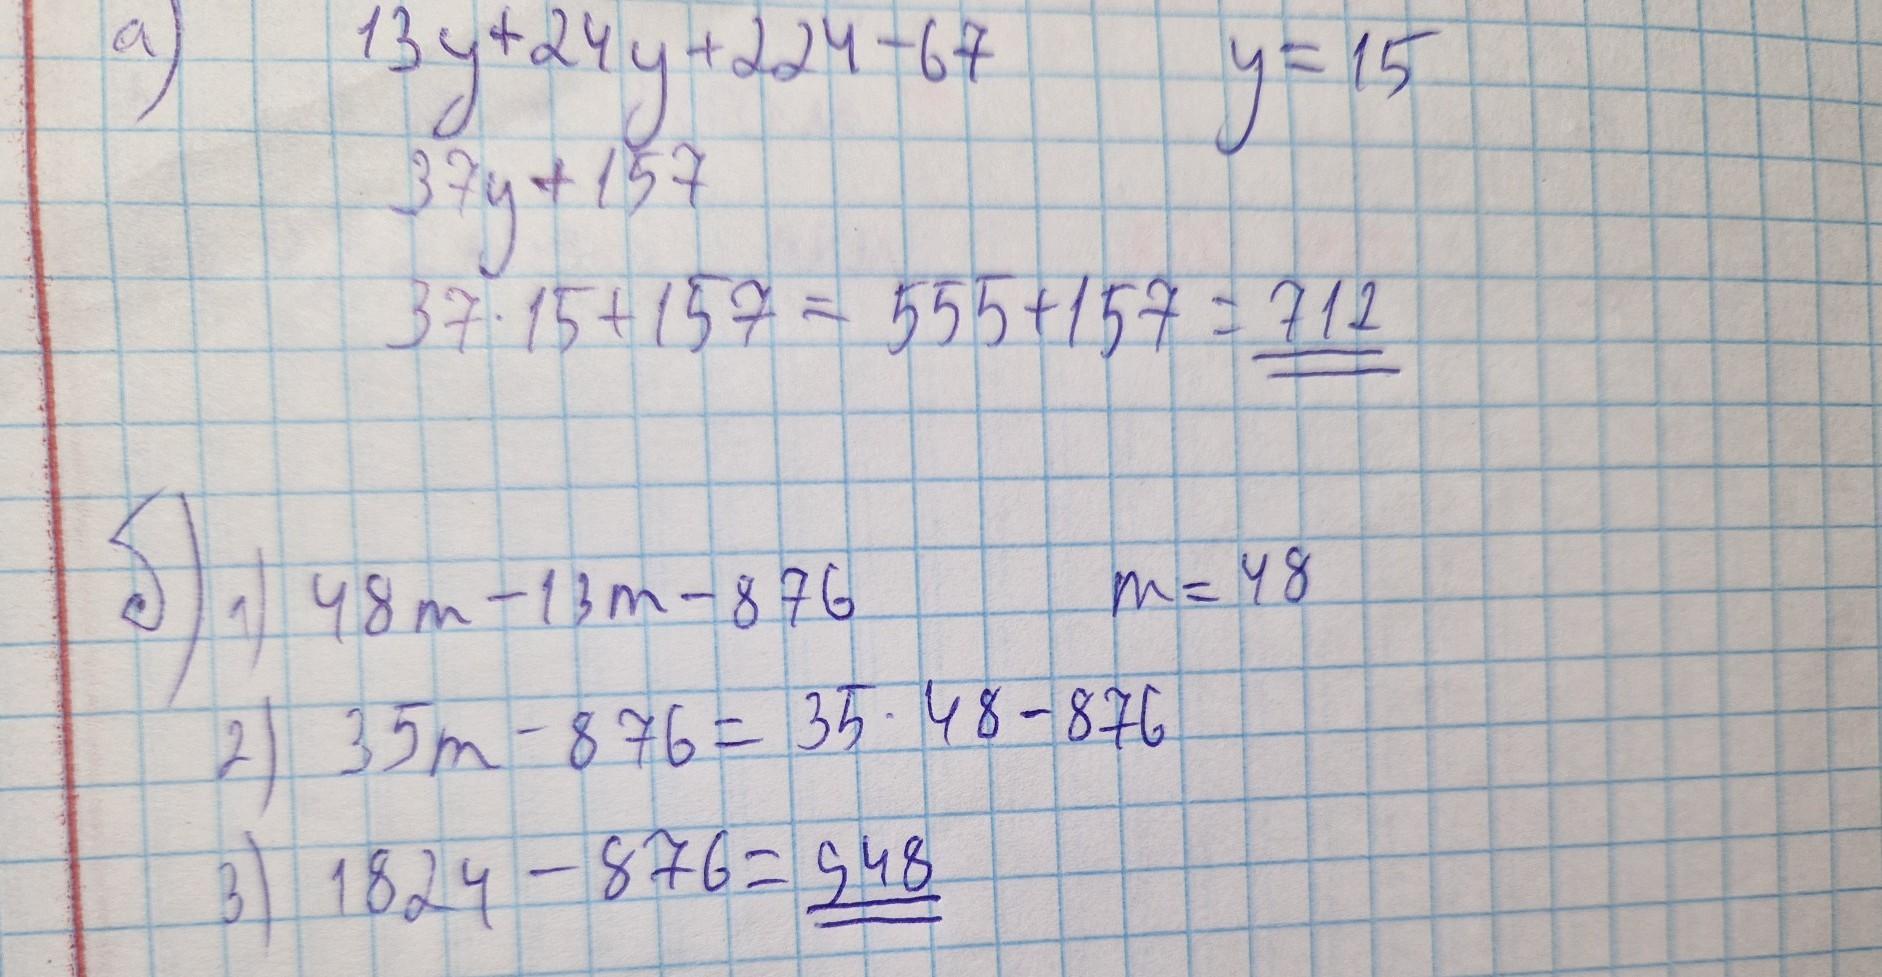 а) 13y+24y+224-67 y=15
37y+157
37·15+157=555+157=712
б) 1) 48m-13m-876 m=48
2) 35m-876=35·48-876
3) 1824-876=948